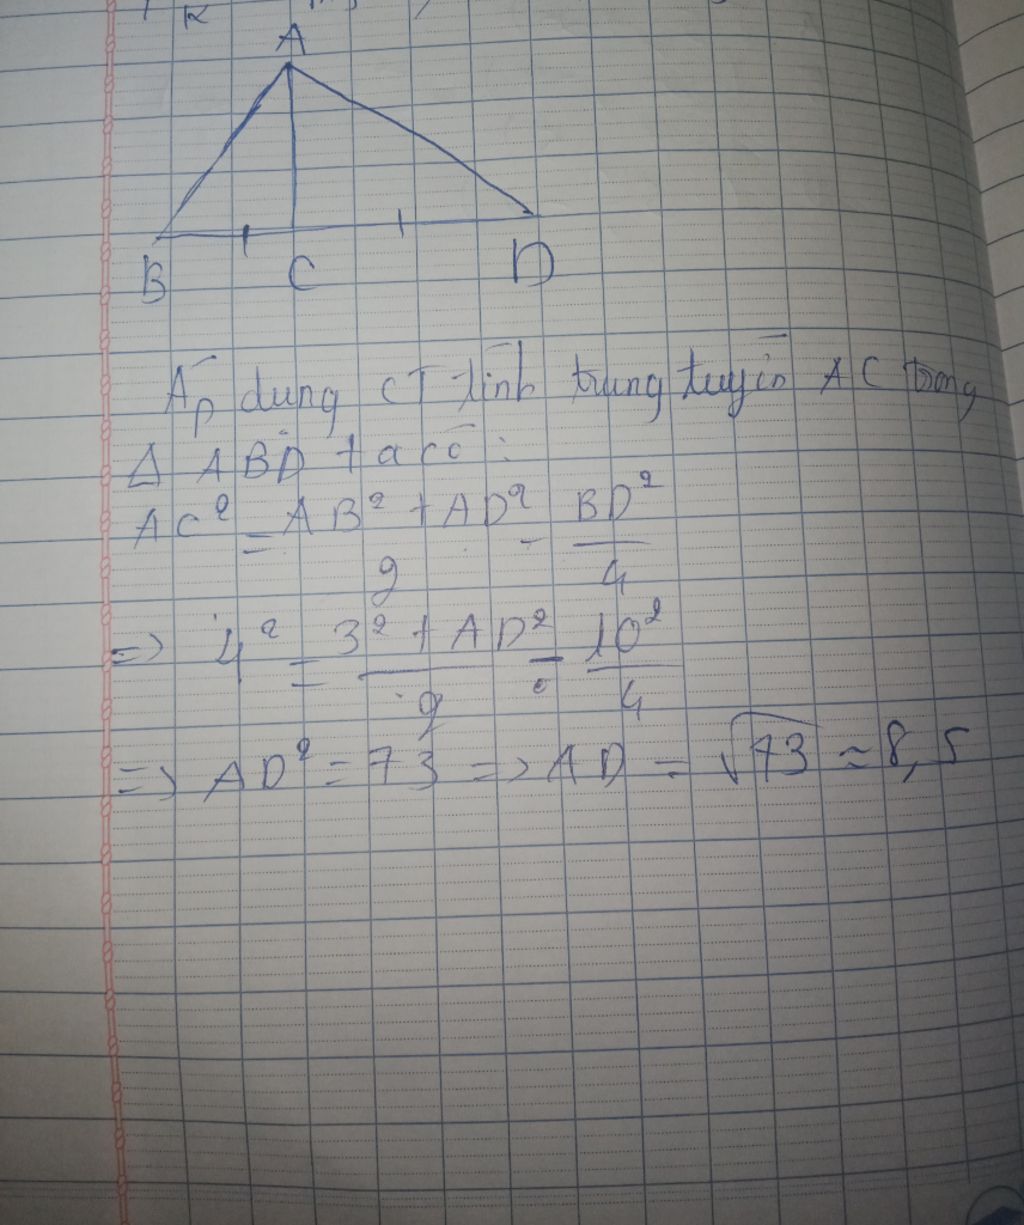 A
B C D
Áp dụng CT tính trung tuyến AC trong
Δ ABD ta có :
AC² = AB² + AD² / 2 - BD² / 4
=> 4² = 3² + AD² / 2 - 10² / 4
=> AD² = 73 => AD = √73 ≈ 8,5